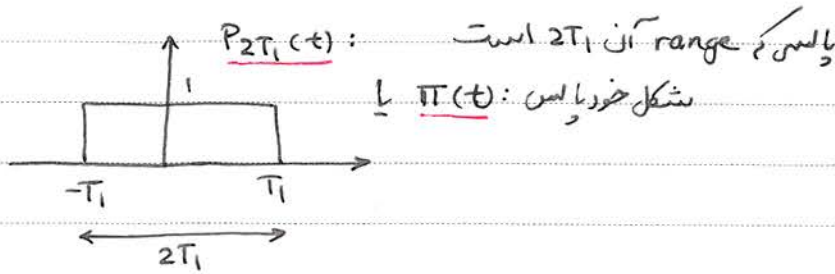 P2T1(t) : پالسی که range آن 2T1 است
یا π(t) : شکل خود پالس
1
-T1 T1
2T1